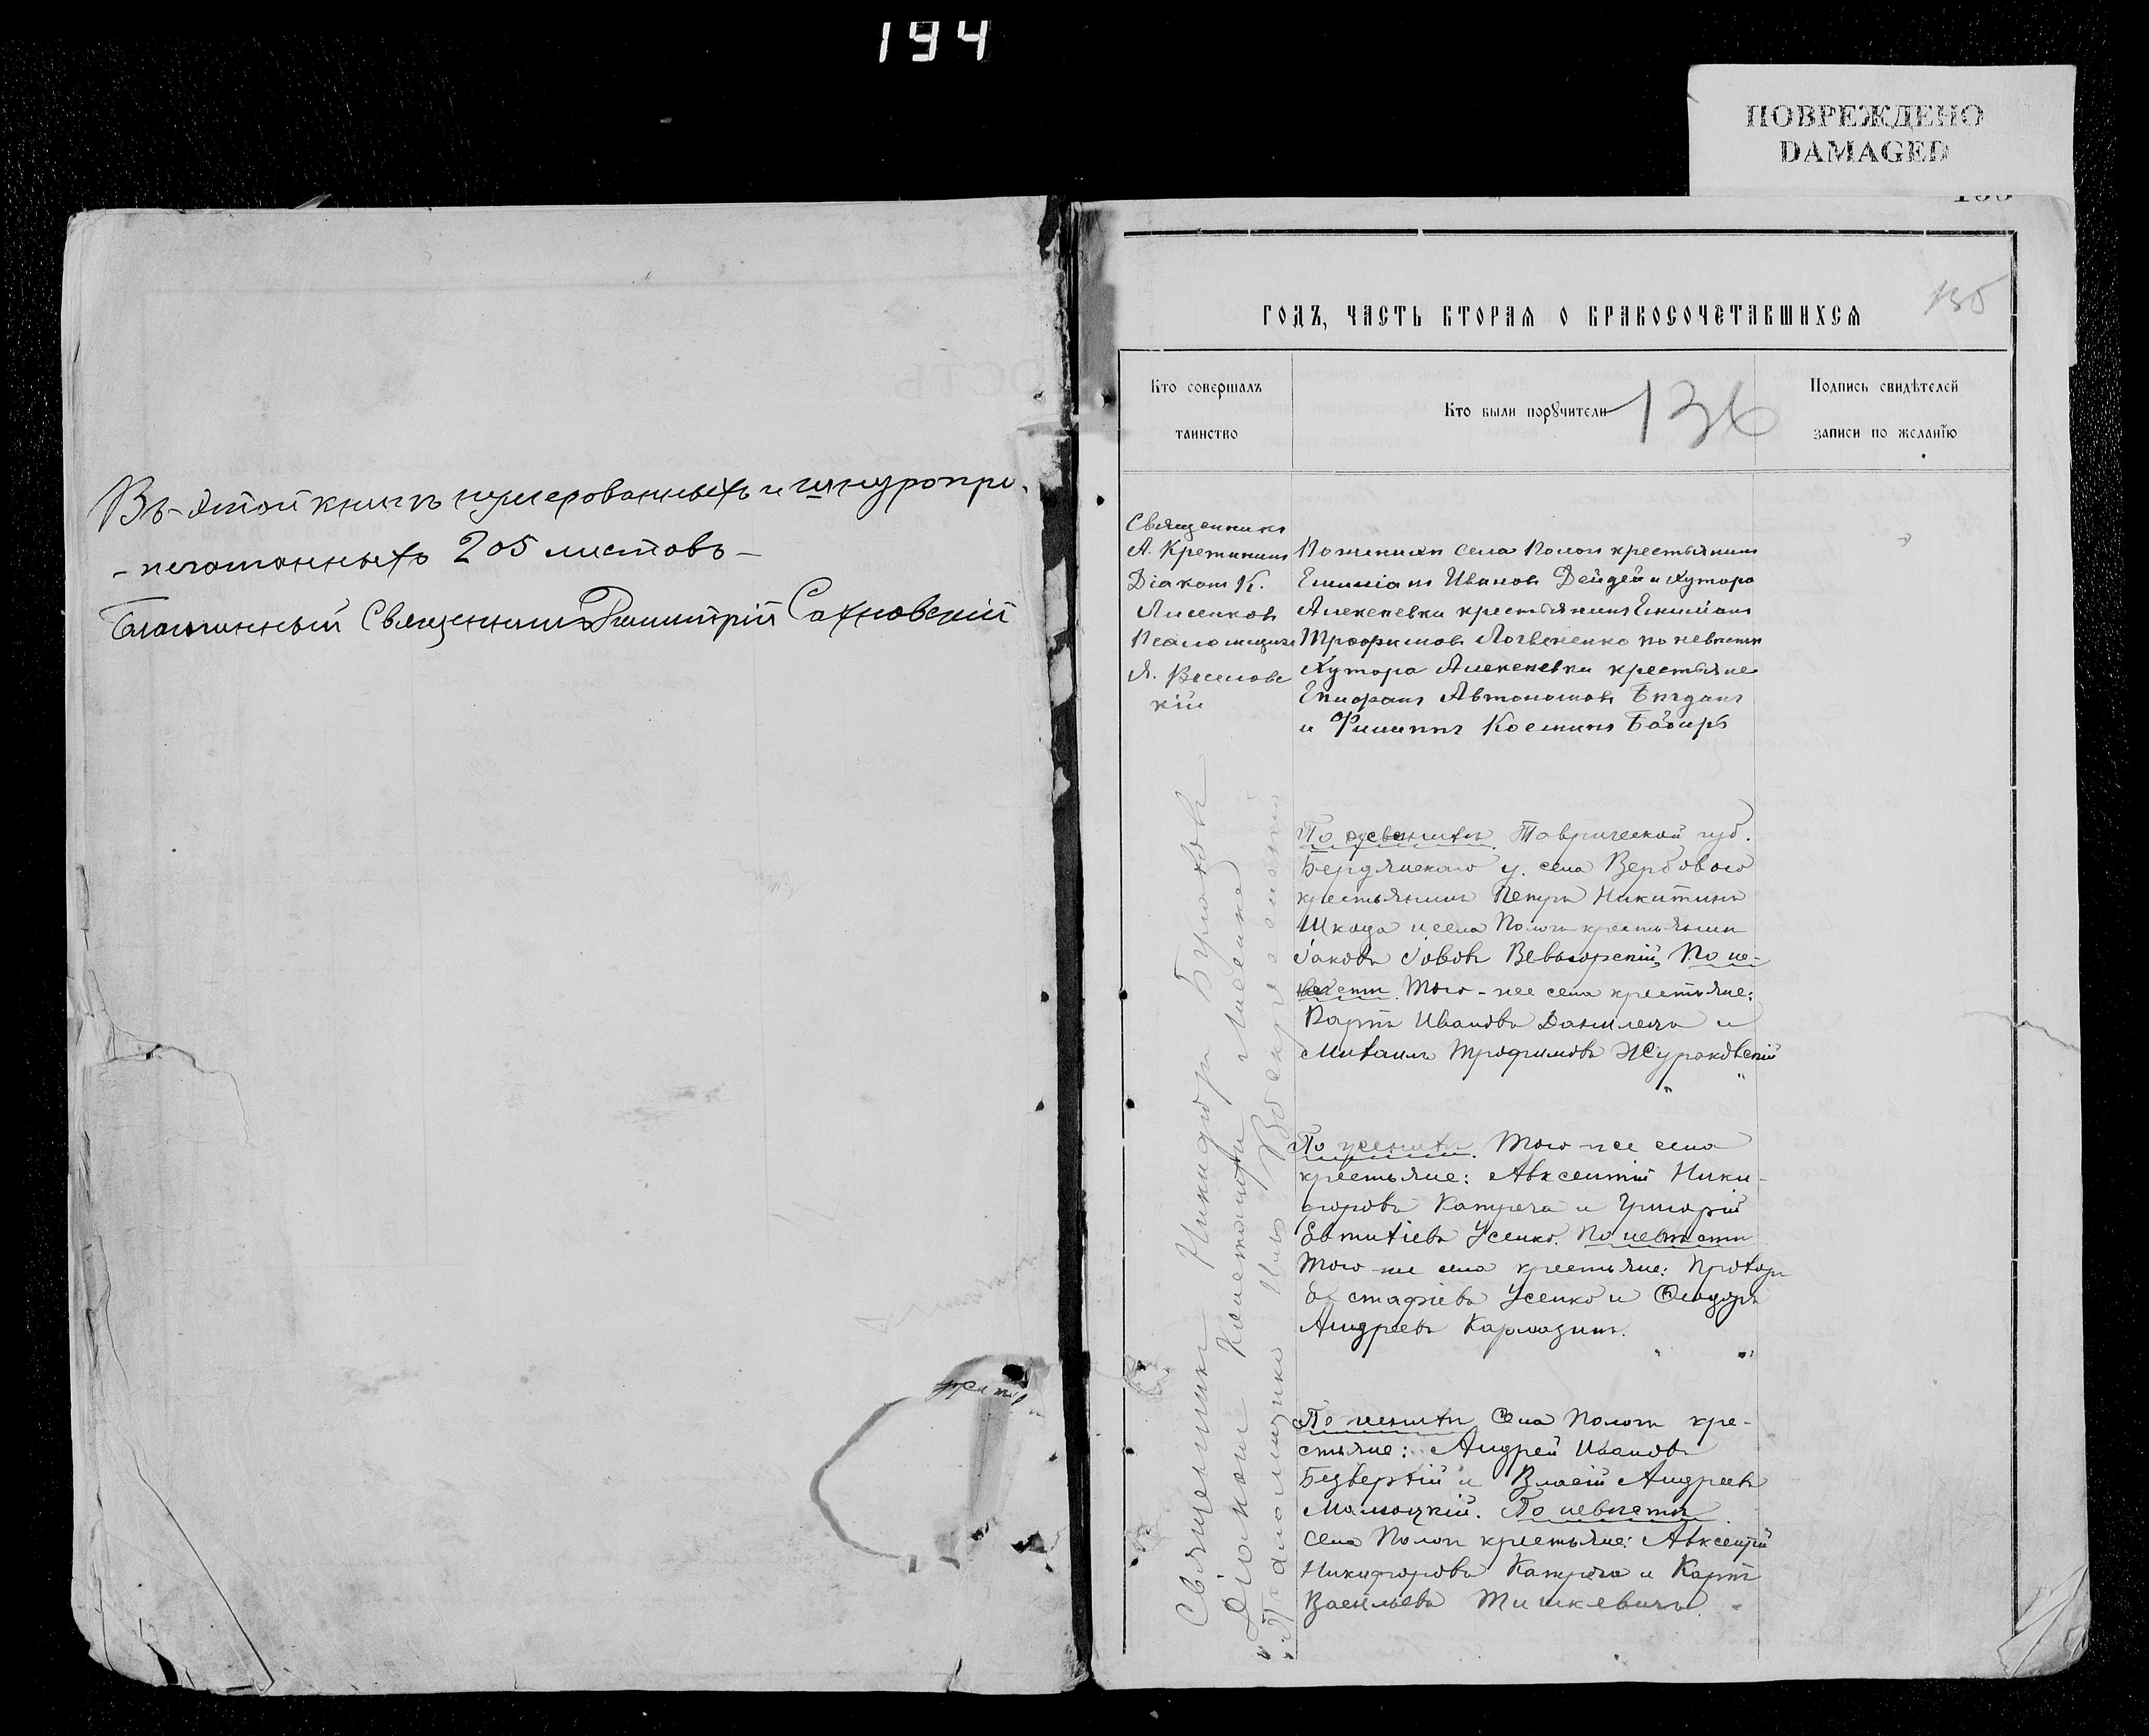 194
ПОВРЕЖДЕНО
DAMAGED
Въ этой книгѣ нумерованныхъ и шнуропри-
-печатанныхъ 205 листовъ –
Благочинный Священникъ Димитрій Сахновскій
135
ГОДЪ, ЧАСТЬ ВТОРАЯ О БРАКОСОЧЕТАВШИХСЯ
Кто совершалъ
таинство
Кто были поручители
136
Подпись свидѣтелей
записи по желанію
Священникъ
А. Кретининъ
Діаконъ К.
Лисенковъ
Псаломщикъ
Я. Веселовс
кій
По женихѣ села Пологъ крестьянинъ
Емиліанъ Ивановъ Дейдей и хутора
Алексѣевки крестьянинъ Емиліанъ
Трофимовъ Логвененко по невѣстѣ
Хутора Алексѣевки крестьяне
Епифанъ Автономовъ Богданъ
и Филиппъ Косминъ Бабырь
Священникъ Никифоръ Бурлаковъ
Діаконъ Константинъ Лисенко
и Псаломщикъ Воскресенскій
По женихѣ. Таврической губ.
Бердянскаго у. села Вербоваго
крестьянинъ Петръ Никитинъ
Шкода и села Пологъ крестьянинъ
Іаковъ Іововъ . По не-
вѣстѣ. Того-же села крестьяне:
Карпъ Ивановъ Данилечъ и
Михаилъ Трофимовъ Жураковскій
По женихѣ. Того-же села
крестьяне: Авксентій Ники-
форовъ Катреча и Григорій
Евтихіевъ Усенко. По невѣстѣ
Того-же села крестьяне: Прохоръ
Евстафіевъ Усенко и Ѳеодоръ
Андреевъ Кармазинъ.
По женихѣ Села Пологъ кре-
стьяне: Андрей Ивановъ
Безверхій и Власій Андреевъ
. По невѣстѣ
Села Пологъ крестьяне: Авксентій
Никифоровъ Катреча и Карпъ
Васильевъ Тишкевичъ